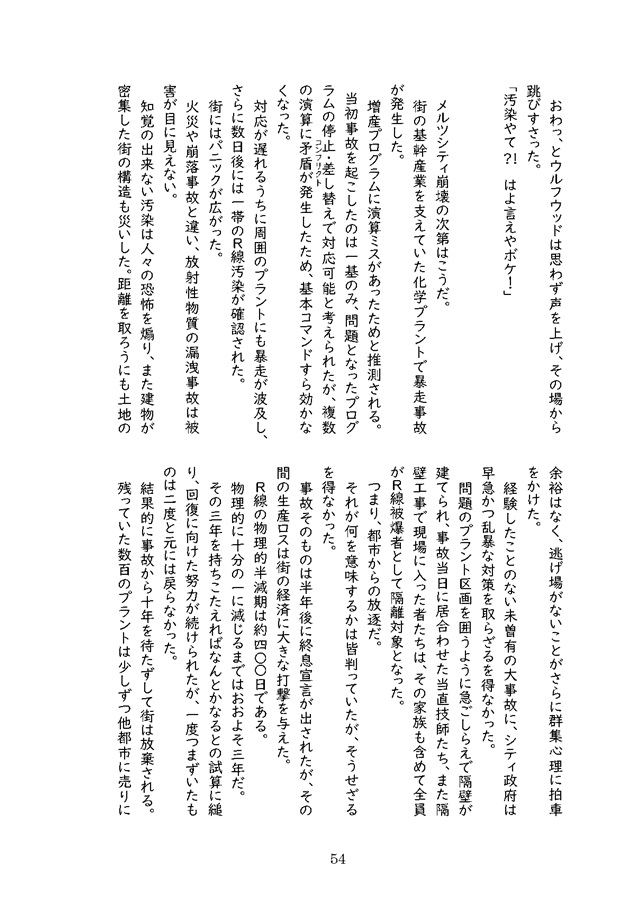 おわっ、とウルフウッドは思わず声を上げ、その場から
跳びすさった。
「汚染やて?! はよ言えやボケ!」
メルツシティ崩壊の次第はこうだ。
街の基幹産業を支えていた化学プラントで暴走事故
が発生した。
増産プログラムに演算ミスがあったためと推測される。
当初事故を起こしたのは一基のみ、問題となったプログ
ラムの停止・差し替えで対応可能と考えられたが、複数
の演算に矛盾が発生したため、基本コマンドすら効かな
コンフリクト
くなった。
対応が遅れるうちに周囲のプラントにも暴走が波及し、
さらに数日後には一帯のR線汚染が確認された。
街にはパニックが広がった。
火災や崩落事故と違い、放射性物質の漏洩事故は被
害が目に見えない。
知覚の出来ない汚染は人々の恐怖を煽り、また建物が
密集した街の構造も災いした。距離を取ろうにも土地の
余裕はなく、逃げ場がないことがさらに群集心理に拍車
をかけた。
経験したことのない未曾有の大事故に、シティ政府は
早急かつ乱暴な対策を取らざるを得なかった。
問題のプラント区画を囲うように急ごしらえで隔壁が
建てられ、事故当日に居合わせた当直技師たち、また隔
壁工事で現場に入った者たちは、その家族も含めて全員
がR線被爆者として隔離対象となった。
つまり、都市からの放逐だ。
それが何を意味するかは皆判っていたが、そうせざる
を得なかった。
事故そのものは半年後に終息宣言が出されたが、その
間の生産ロスは街の経済に大きな打撃を与えた。
R線の物理的半減期は約四〇〇日である。
物理的に十分の一に減じるまではおおよそ三年だ。
その三年を持ちこたえればなんとかなるとの試算に縋
り、回復に向けた努力が続けられたが、一度つまずいたも
のは二度と元には戻らなかった。
結果的に事故から十年を待たずして街は放棄される。
残っていた数百のプラントは少しずつ他都市に売りに
54